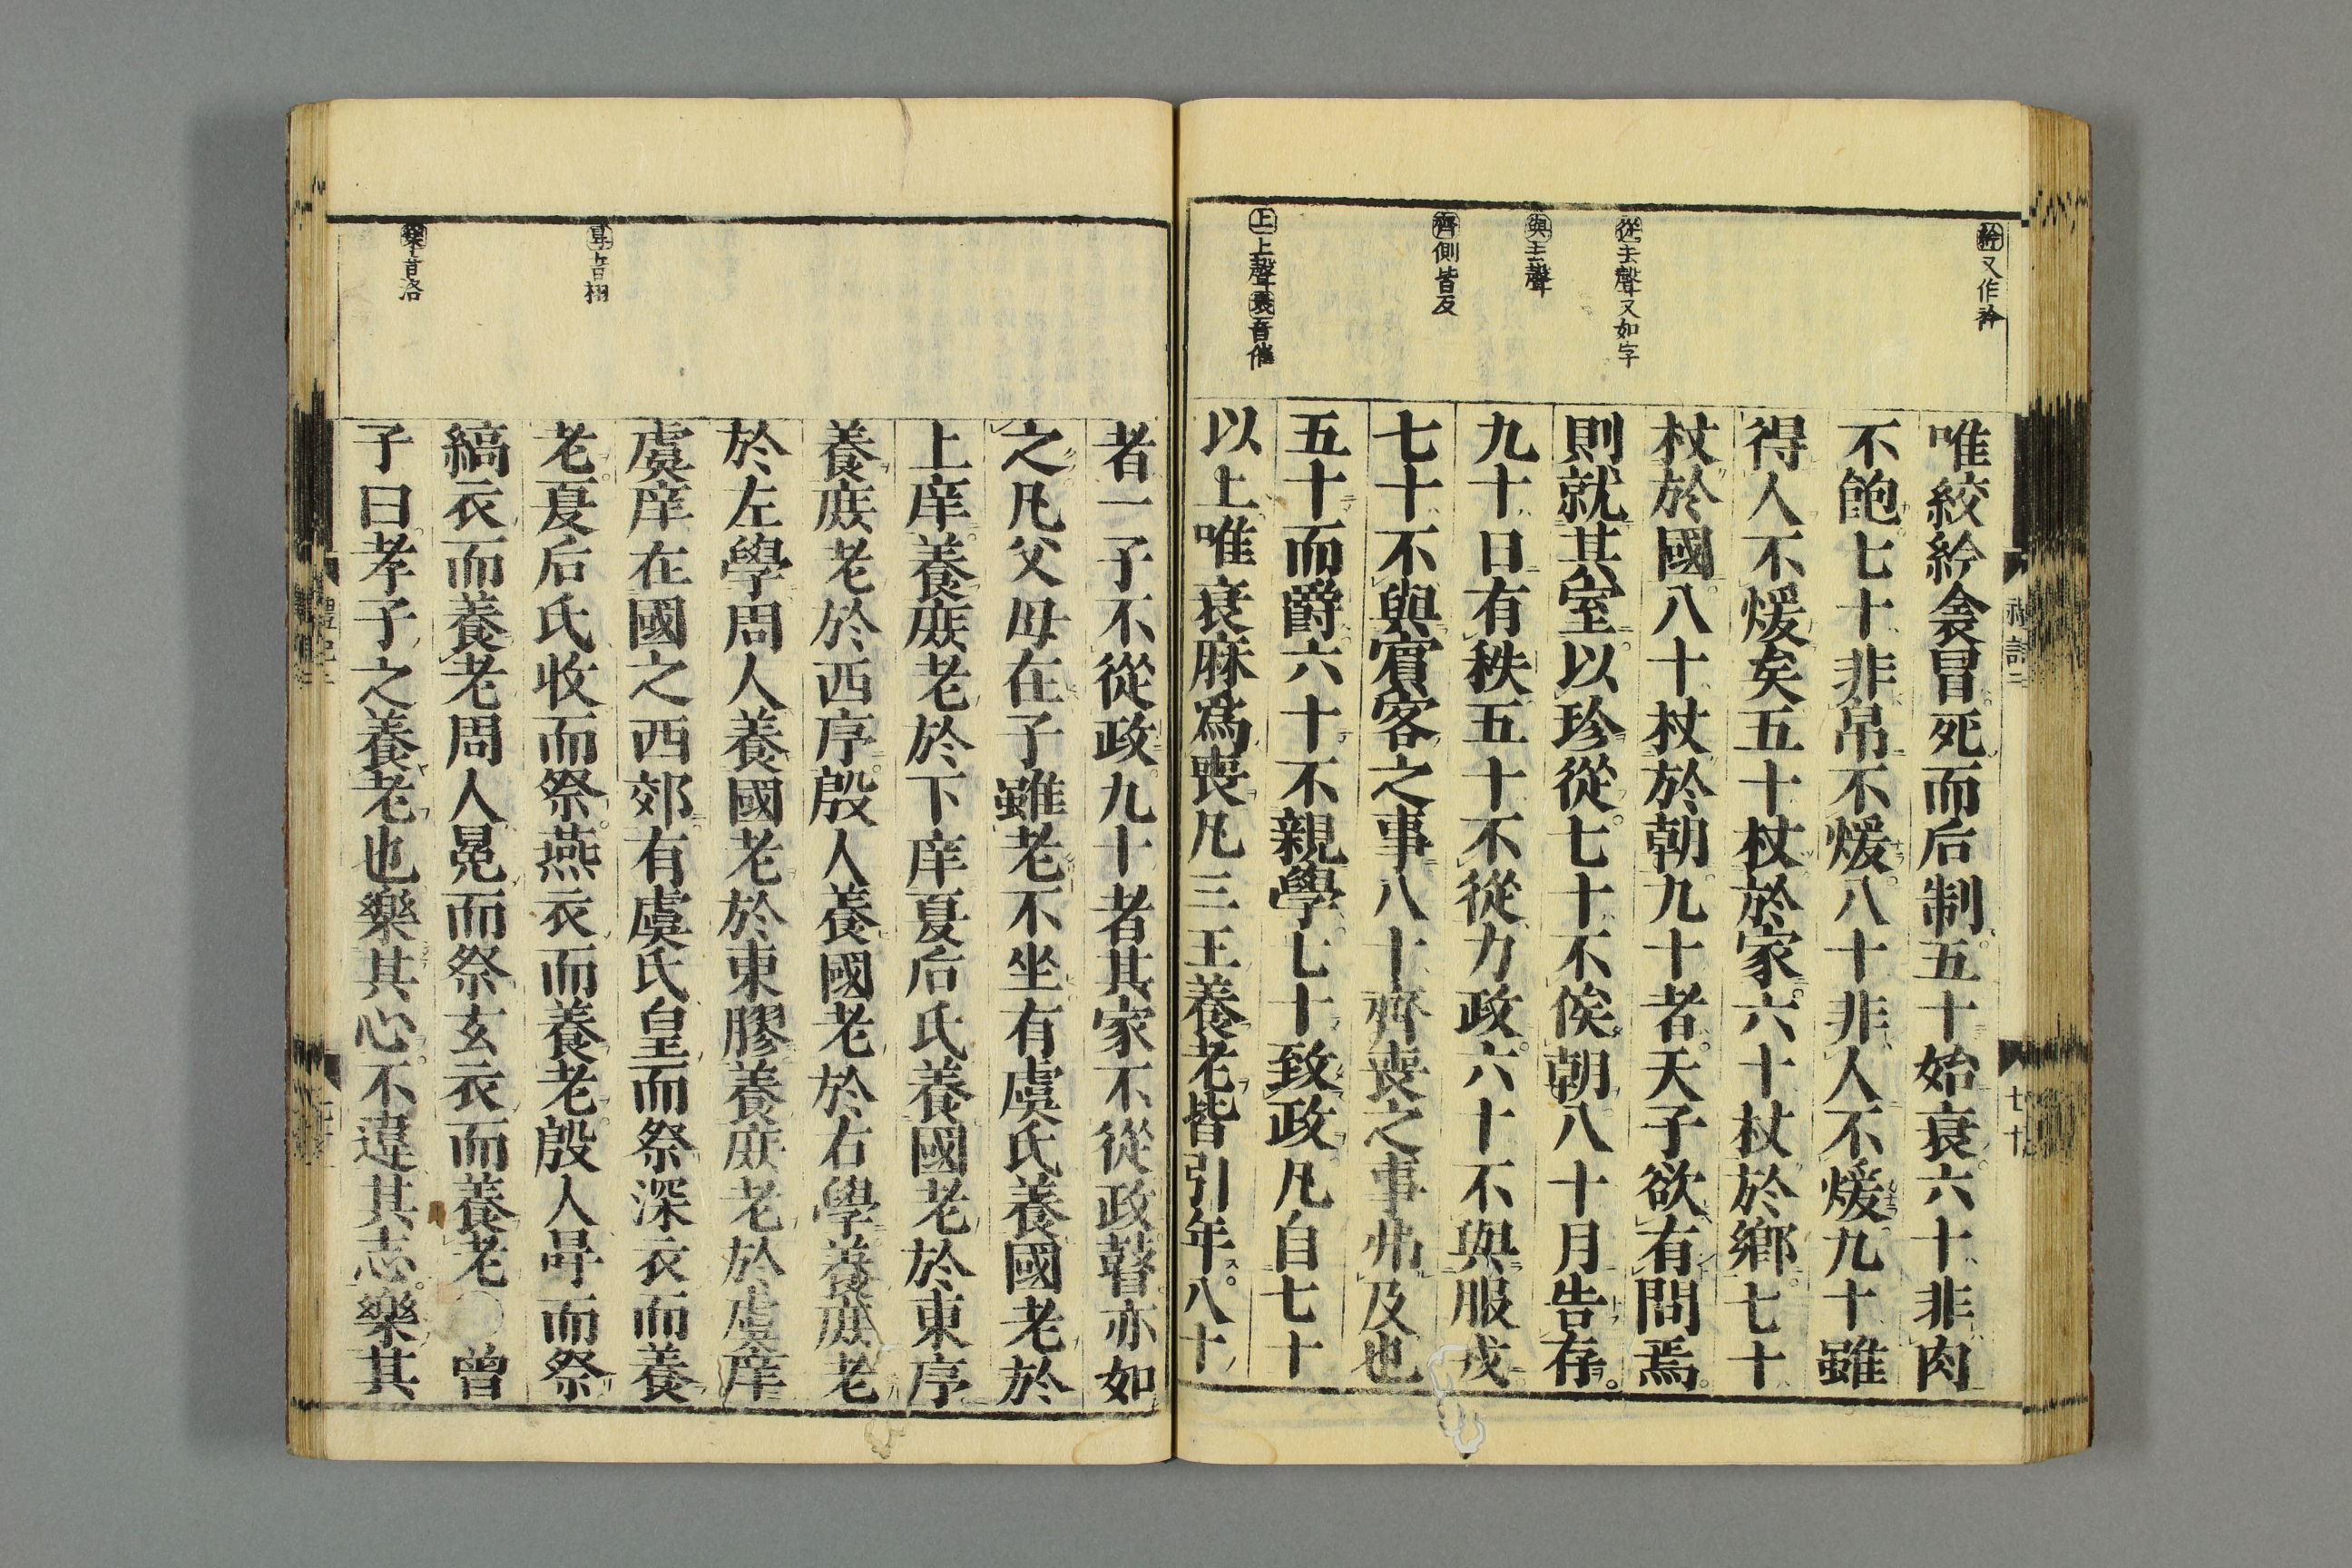 紟又作衿
從去聲又如字
與去聲
齊側皆反
上上聲衰音催
唯絞紟衾冒死而后制五十始衰六十非肉
不飽七十非帛不煖八十非人不煖九十雖
得人不煖矣五十杖於家六十杖於鄉七十
杖於國八十杖於朝九十者天子欲有問焉
則就其室以珍從七十不俟朝八十月告存
九十日有秩五十不從力政六十不與服戎
七十不與賓客之事八十齊喪之事弗及也
五十而爵六十不親學七十致政凡自七十
以上唯衰麻爲喪凡三王養老皆引年八十
禮記二
七十
冔音栩
樂音洛
者一子不從政九十者其家不從政瞽亦如
之凡父母在子雖老不坐有虞氏養國老於
上庠養庶老於下庠夏后氏養國老於東序
養庶老於西序殷人養國老於右學養庶老
於左學周人養國老於東膠養庶老於虞庠
虞庠在國之西郊有虞氏皇而祭深衣而養
老夏后氏收而祭燕衣而養老殷人冔而祭
縞衣而養老周人冕而祭玄衣而養老○曾
子曰孝子之養老也樂其心不違其志樂其